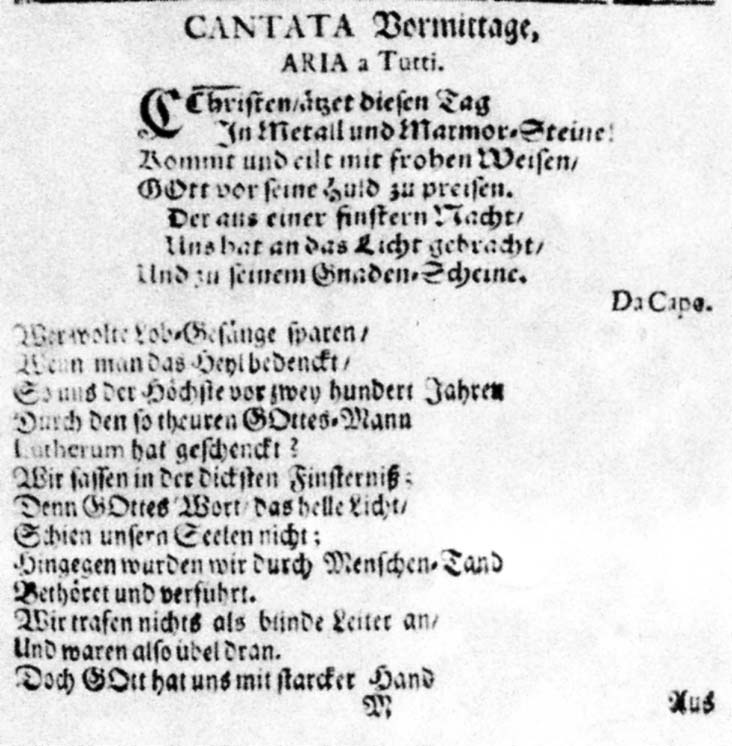 CANTATA Vormittage,
ARIA a Tutti.
CChristen/ätzet diesen Tag
In Metall und Marmor-Steine!
Kommt und eilt mit frohen Weisen/
GOtt vor seine Huld zu preisen.
Der aus einer finstern Nacht/
Uns hat an das Licht gebracht/
Und zu seinem Gnaden-Scheine.
Da Capo.
Wer wolte Lob-Gesänge sparen/
Wenn man das Heyl bedenckt/
So uns der Höchste vor zwey hundert Jahren
Durch den so theuren GOttes-Mann
Lutherum hat geschenckt?
Wir sassen in der dicksten Finsterniß;
Denn GOttes Wort/das helle Licht/
Schien unsern Seelen nicht;
Hingegen wurden wir durch Menschen-Tand
Bethöret und verführt.
Wir trafen nichts als blinde Leiter an/
Und waren also übel dran.
Doch GOtt hat uns mit starcker Hand
M
Aus